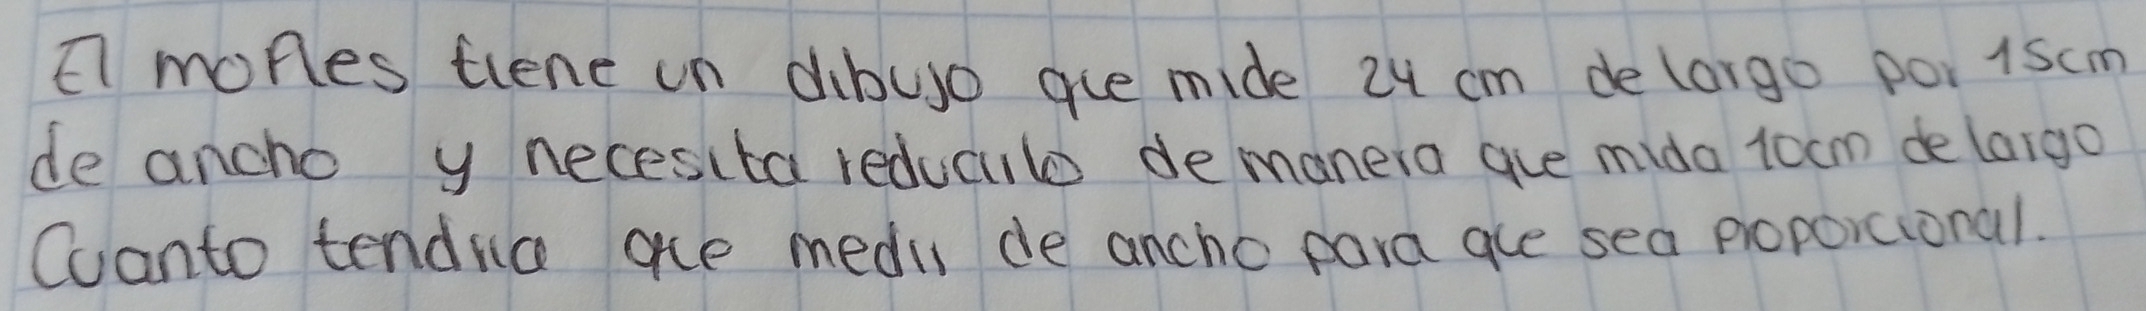 El mofles tiene un dibujo que mide 24 cm de largo por 15cm
de ancho y necesita reducirlo de manera que mida 10cm de largo
Cuanto tendria que medir de ancho para que sea proporcional.